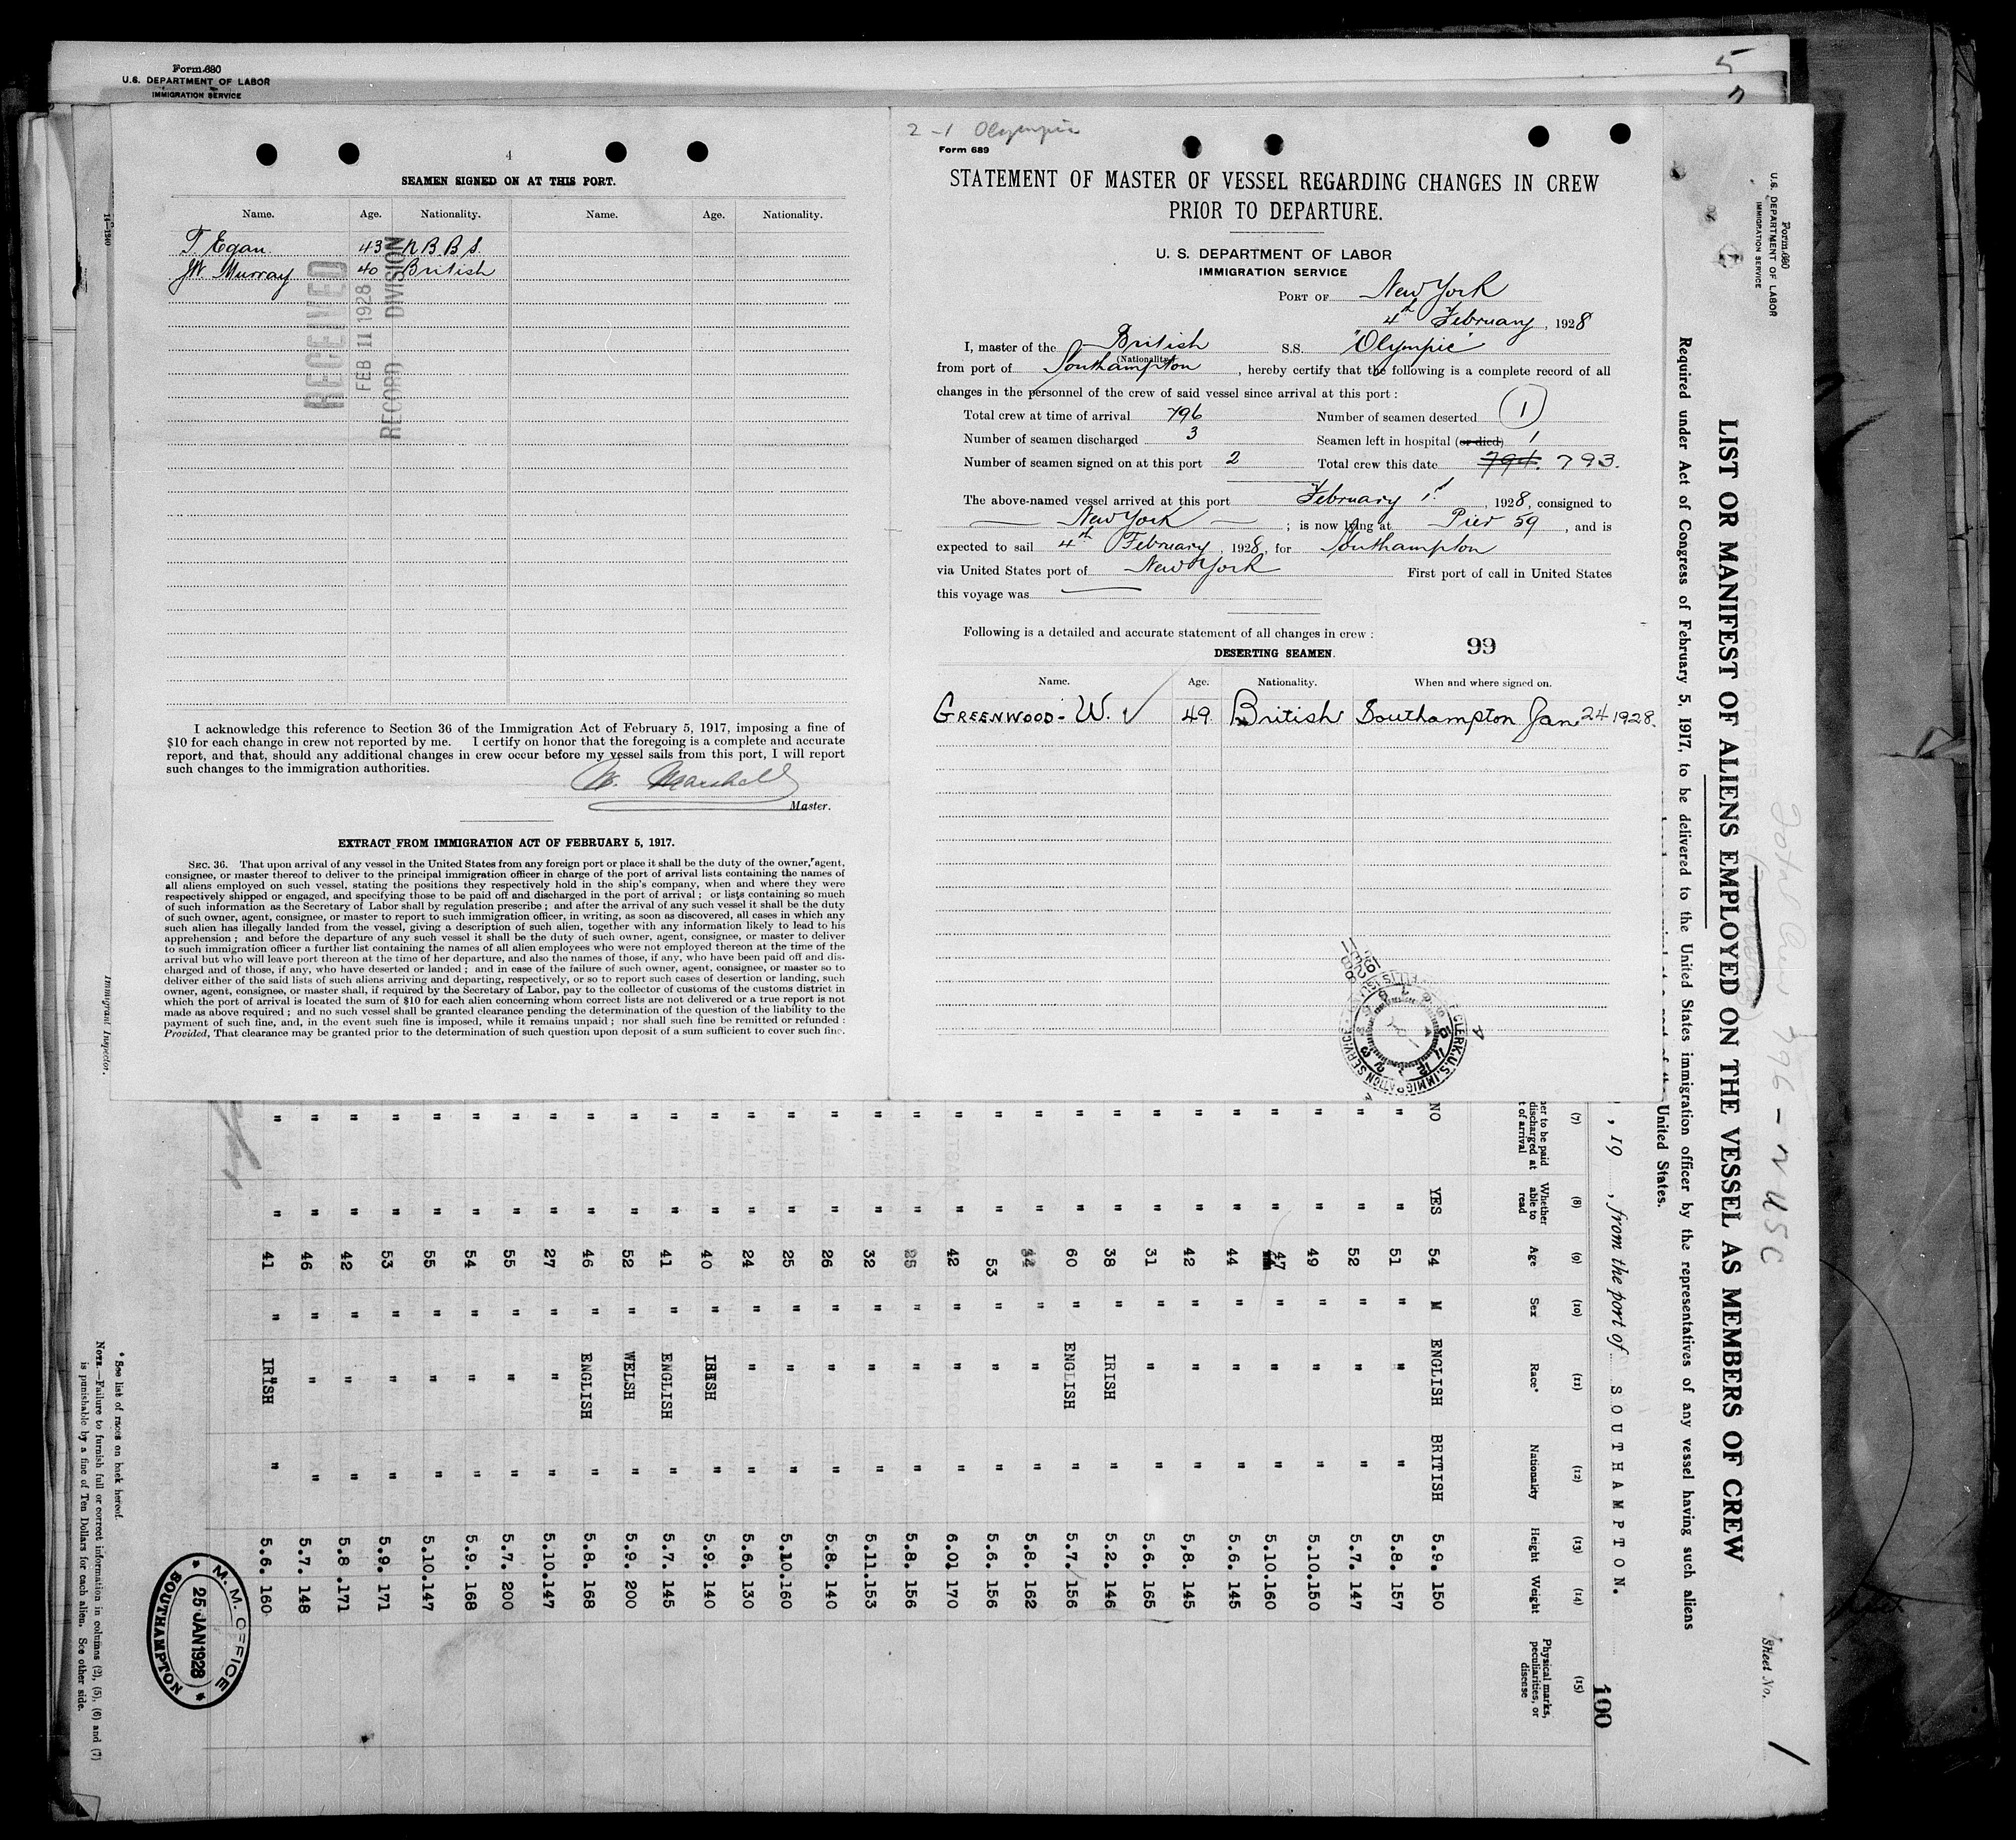 Form 680
U.S. DEPARTMENT OF LABOR
IMMIGRATION SERVICE
5
4
SEAMEN SIGNED ON AT THIS PORT.
Name. Age. Nationality. Name. Age. Nationality.
T Egan 43 N B B S.
JW Murray 40 British
RECEIVED
FEB 11 1928
RECORD DIVISION
I acknowledge this reference to Section 36 of the Immigration Act of February 5, 1917, imposing a fine of
$10 for each change in crew not reported by me. I certify on honor that the foregoing is a complete and accurate
report, and that, should any additional changes in crew occur before my vessel sails from this port, I will report
such changes to the immigration authorities.
W. Marshall
Master.
EXTRACT FROM IMMIGRATION ACT OF FEBRUARY 5, 1917.
SEC. 36. That upon arrival of any vessel in the United States from any foreign port or place it shall be the duty of the owner, agent,
consignee, or master thereof to deliver to the principal immigration officer in charge of the port of arrival lists containing the names of
all aliens employed on such vessel, stating the positions they respectively hold in the ship's company, when and where they were
respectively shipped or engaged, and specifying those to be paid off and discharged in the port of arrival; or lists containing so much
of such information as the Secretary of Labor shall by regulation prescribe; and after the arrival of any such vessel it shall be the duty
of such owner, agent, consignee, or master to report to such immigration officer, in writing, as soon as discovered, all cases in which any
such alien has illegally landed from the vessel, giving a description of such alien, together with any information likely to lead to his
apprehension; and before the departure of any such vessel it shall be the duty of such owner, agent, consignee, or master to deliver
to such immigration officer a further list containing the names of all alien employees who were not employed thereon at the time of the
arrival but who will leave port thereon at the time of her departure, and also the names of those, if any, who have been paid off and dis-
charged and of those, if any, who have deserted or landed; and in case of the failure of such owner, agent, consignee, or master so to
deliver either of the said lists of such aliens arriving and departing, respectively, or so to report such cases of desertion or landing, such
owner, agent, consignee, or master shall, if required by the Secretary of Labor, pay to the collector of customs of the customs district in
which the port of arrival is located the sum of $10 for each alien concerning whom correct lists are not delivered or a true report is not
made as above required; and no such vessel shall be granted clearance pending the determination of the question of the liability to the
payment of such fine, and, in the event such fine is imposed, while it remains unpaid; nor shall such fine be remitted or refunded:
Provided, That clearance may be granted prior to the determination of such question upon deposit of a sum sufficient to cover such fine.
14—1240
Immigrant Inspector.
2 - 1 Olympic
Form 689
STATEMENT OF MASTER OF VESSEL REGARDING CHANGES IN CREW
PRIOR TO DEPARTURE.
U. S. DEPARTMENT OF LABOR
IMMIGRATION SERVICE
PORT OF New York
4th February, 1928
I, master of the British S.S. "Olympic"
(Nationality)
from port of Southampton, hereby certify that the following is a complete record of all
changes in the personnel of the crew of said vessel since arrival at this port:
Total crew at time of arrival 796 Number of seamen deserted 1
Number of seamen discharged 3 Seamen left in hospital (or died) 1
Number of seamen signed on at this port 2 Total crew this date 794. 793.
The above-named vessel arrived at this port February 1st, 1928, consigned to
New York; is now lying at Pier 59, and is
expected to sail 4th February, 1928, for Southampton
via United States port of New York First port of call in United States
this voyage was
Following is a detailed and accurate statement of all changes in crew:
99
DESERTING SEAMEN.
Name. Age. Nationality. When and where signed on.
GREENWOOD - W. ✓ 49 British Southampton Jan 24 1928.
CLERK, U.S. IMMIGRATION SERVICE
1928
Form 680
U.S. DEPARTMENT OF LABOR
IMMIGRATION SERVICE
Total Crew 796 - N USC
Sheet No. 1
LIST OR MANIFEST OF ALIENS EMPLOYED ON THE VESSEL AS MEMBERS OF CREW
Required under Act of Congress of February 5, 1917, to be delivered to the United States immigration officer by the representatives of any vessel having such aliens
United States.
, 19 , from the port of SOUTHAMPTON.
100
(7) (8) (9) (10) (11) (12) (13) (14) (15)
her to be paid discharged at t of arrival Whether able to read Age Sex Race* Nationality Height Weight Physical marks, peculiarities, or disease
NO YES 54 M ENGLISH BRITISH 5.9. 150
" " 51 " " " 5.8. 157
" " 52 " " " 5.7. 147
" " 49 " " " 5.10. 150
" " 47 " " " 5.10. 160
" " 44 " " " 5.6. 145
" " 42 " " " 5,8. 145
" " 31 " " " 5.6. 165
" " 38 " IRISH " 5.2. 146
" " 60 " ENGLISH " 5.7. 156
" " " " " 5.8. 162
" " 53 " " " 5.6. 156
" " 42 " " " 6.01 170
" " " " " 5.8. 156
" " 32 " " " 5.11. 153
" " 26 " " " 5.8. 140
" " 25 " " " 5.10. 160
" " 24 " " " 5.6. 130
" " 40 " IRISH " 5.9. 140
" " 41 " ENGLISH " 5.7. 145
" " 52 " WELSH " 5.9. 200
" " 46 " ENGLISH " 5.8. 168
" " 27 " " " 5.10. 147
" " 55 " " " 5.7. 200
" " 54 " " " 5.9. 168
" " 55 " " " 5.10. 147
" " 53 " " " 5.9. 171
" " 42 " " " 5.8. 171
" " 46 " " " 5.7. 148
" " 41 " IRISH " 5.6. 160
* See list of races on back hereof.
NOTE.—Failure to furnish full or correct information in columns (2), (5), (6) and (7)
is punishable by a fine of Ten Dollars for each alien. See other side.
M. M. OFFICE
25 JAN 1928
SOUTHAMPTON